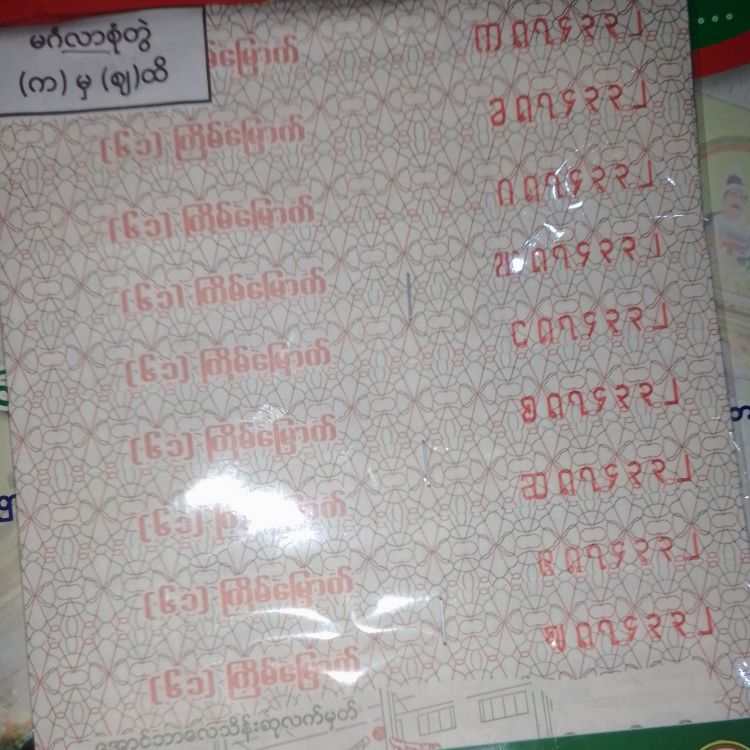 မင်္ဂလာစုံတွဲ
(က) မှ (ဈ)ထိ
မြောက် က ၈၇၄၃၃၂
(၆၁) ကြိမ်မြောက် ခ ၈၇၄၃၃၂
(၆၁) ကြိမ်မြောက် ဂ ၈၇၄၃၃၂
(၆၁) ကြိမ်မြောက် ဃ ၈၇၄၃၃၂
(၆၁) ကြိမ်မြောက် င ၈၇၄၃၃၂
(၆၁) ကြိမ်မြောက် စ ၈၇၄၃၃၂
(၆၁) ကြိမ်မြောက် ဆ ၈၇၄၃၃၂
(၆၁) ကြိမ်မြောက် ဇ ၈၇၄၃၃၂
(၆၁) ကြိမ်မြောက် ဈ ၈၇၄၃၃၂
အောင်ဘာလေသိန်းဆုလက်မှတ်